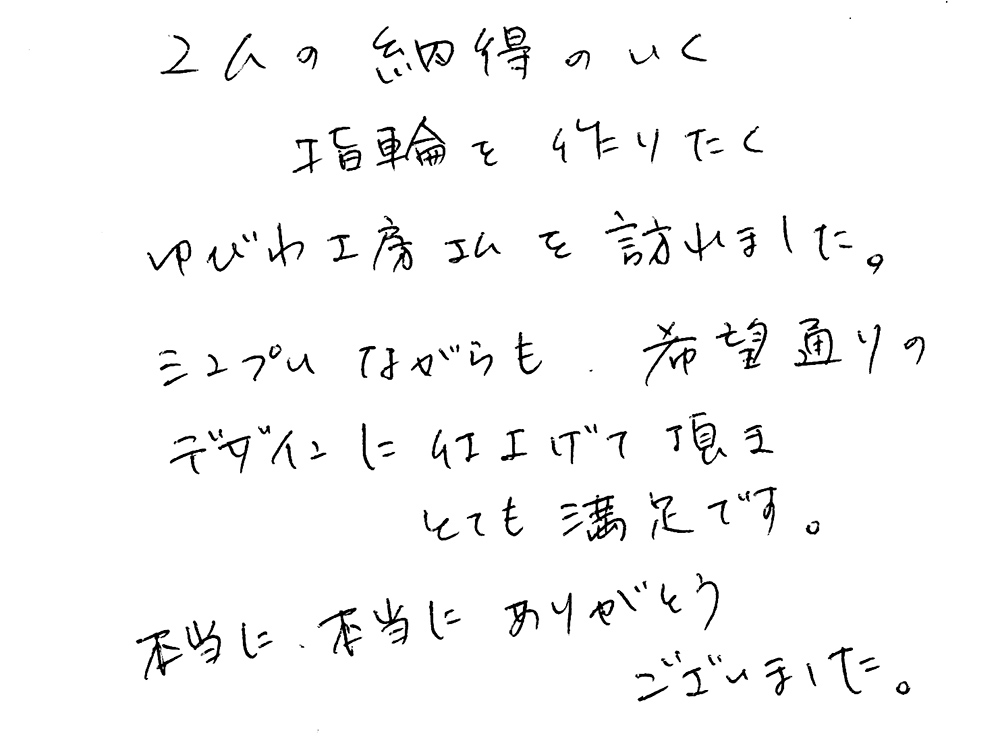 2人の納得のいく
指輪を作りたく
ゆびわ工房エムを訪れました。
シンプルながらも、希望通りの
デザインに仕上げて頂き
とても満足です。
本当に、本当にありがとう
ございました。